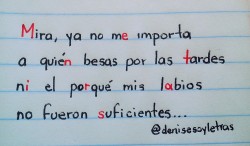 Mira, ya no me importa
a quién besas por las tardes
ni el porqué mis labios
no fueron suficientes...
@denisesoyletras